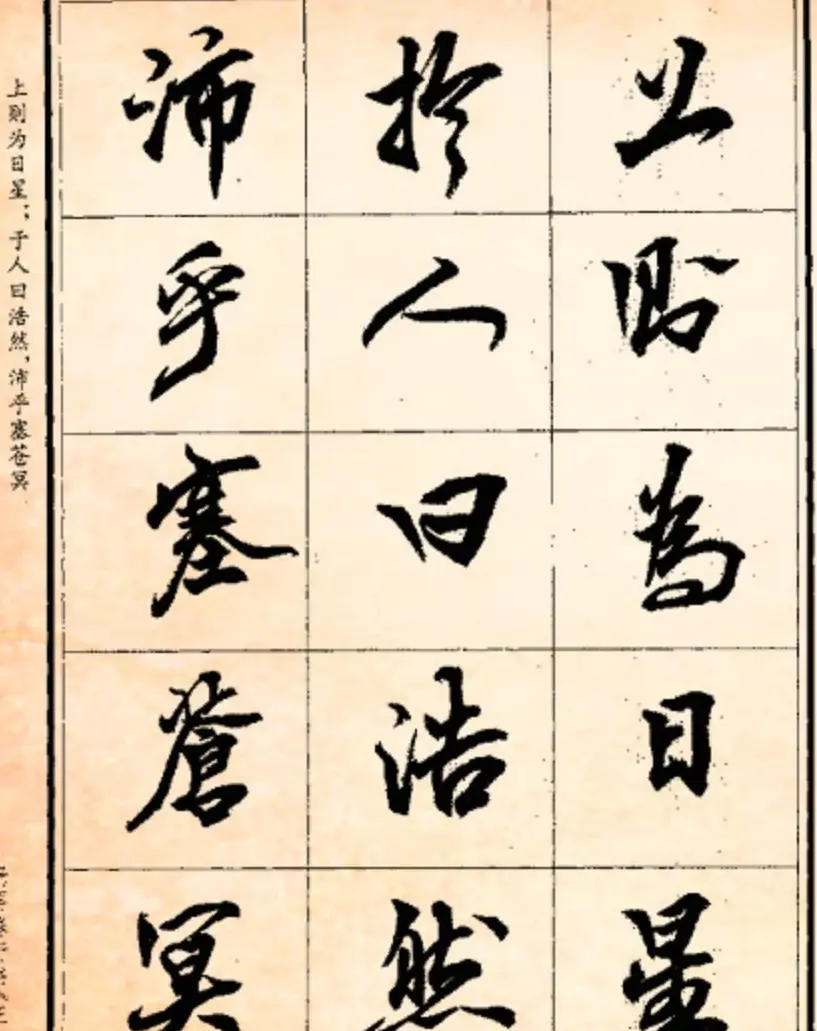 上則為日星
於人曰浩然
沛乎塞蒼冥
上则为日星；于人曰浩然，沛乎塞苍冥